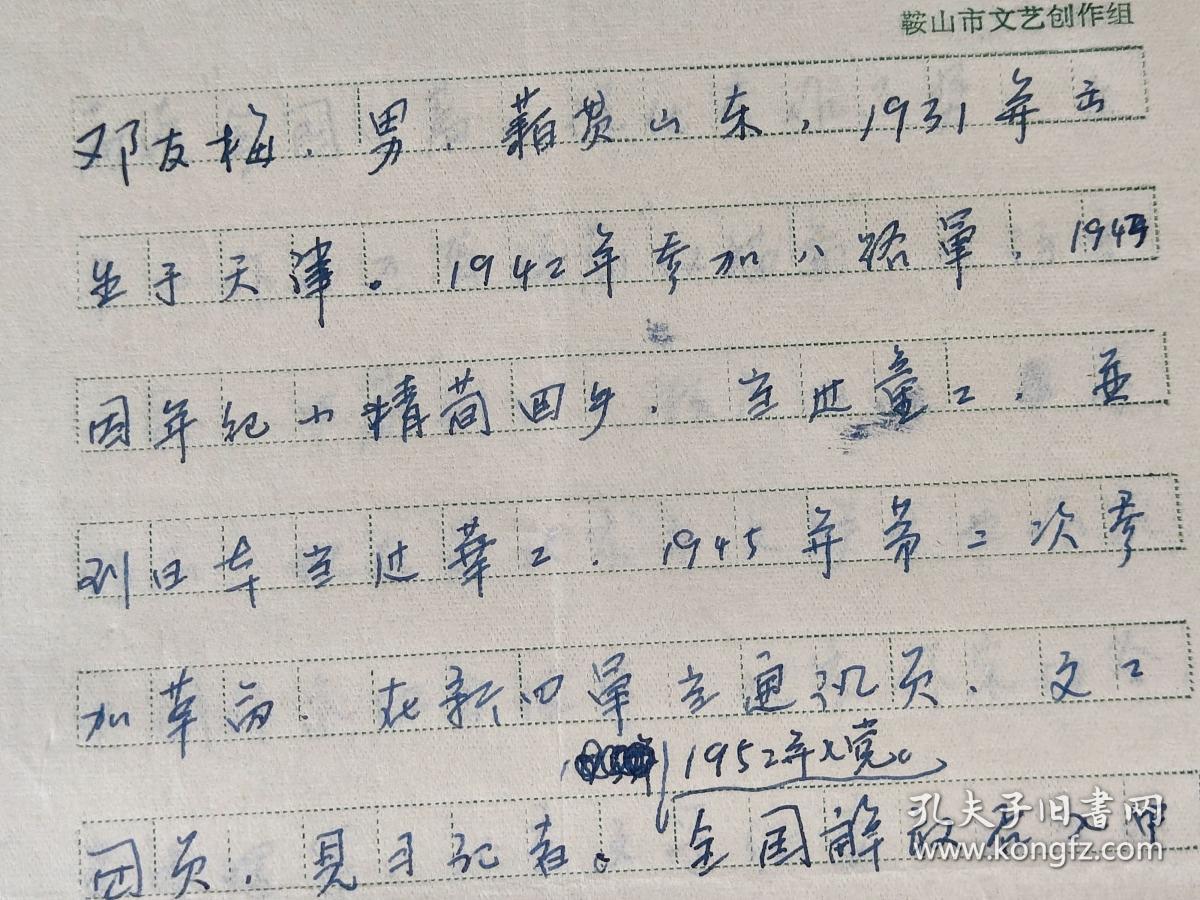 鞍山市文艺创作组
邓友梅、男、藉贯山东，1931年出
生于天津。1942年参加八路軍，194
因年纪小精简回乡，当过童工，並
到日本当过華工。1945年第二次参
加革命。在新四軍当通讯员、文工
1952年入党。
团员、見习記者。全国解放后
孔夫子旧書网
www.kongfz.com